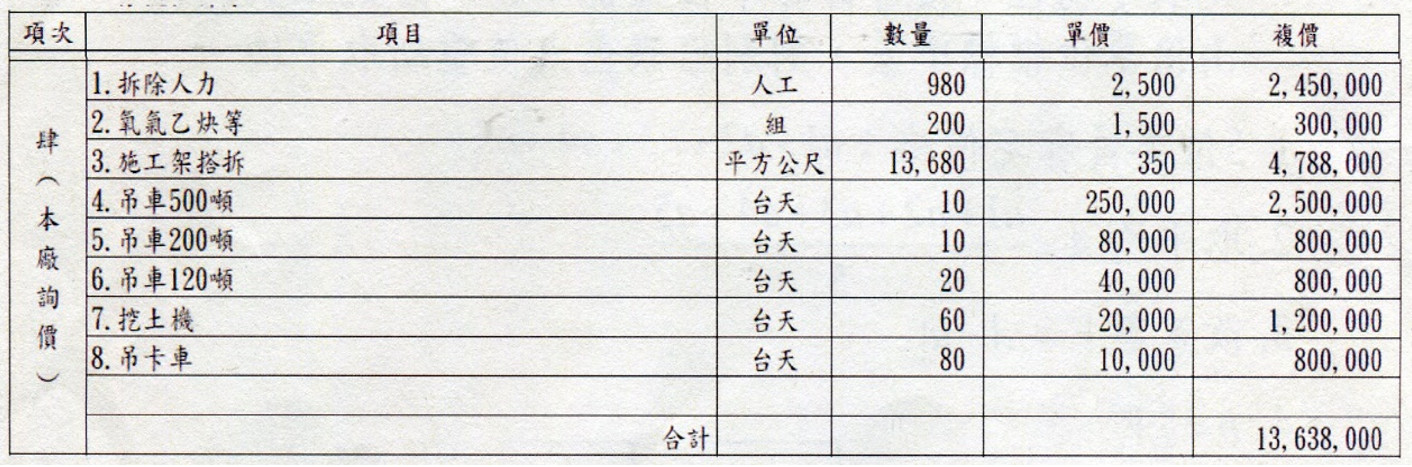 項次 項目 單位 數量 單價 複價
肆（本廠詢價）
1.拆除人力 人工 980 2,500 2,450,000
2.氧氣乙炔等 組 200 1,500 300,000
3.施工架搭拆 平方公尺 13,680 350 4,788,000
4.吊車500噸 台天 10 250,000 2,500,000
5.吊車200噸 台天 10 80,000 800,000
6.吊車120噸 台天 20 40,000 800,000
7.挖土機 台天 60 20,000 1,200,000
8.吊卡車 台天 80 10,000 800,000
合計 13,638,000